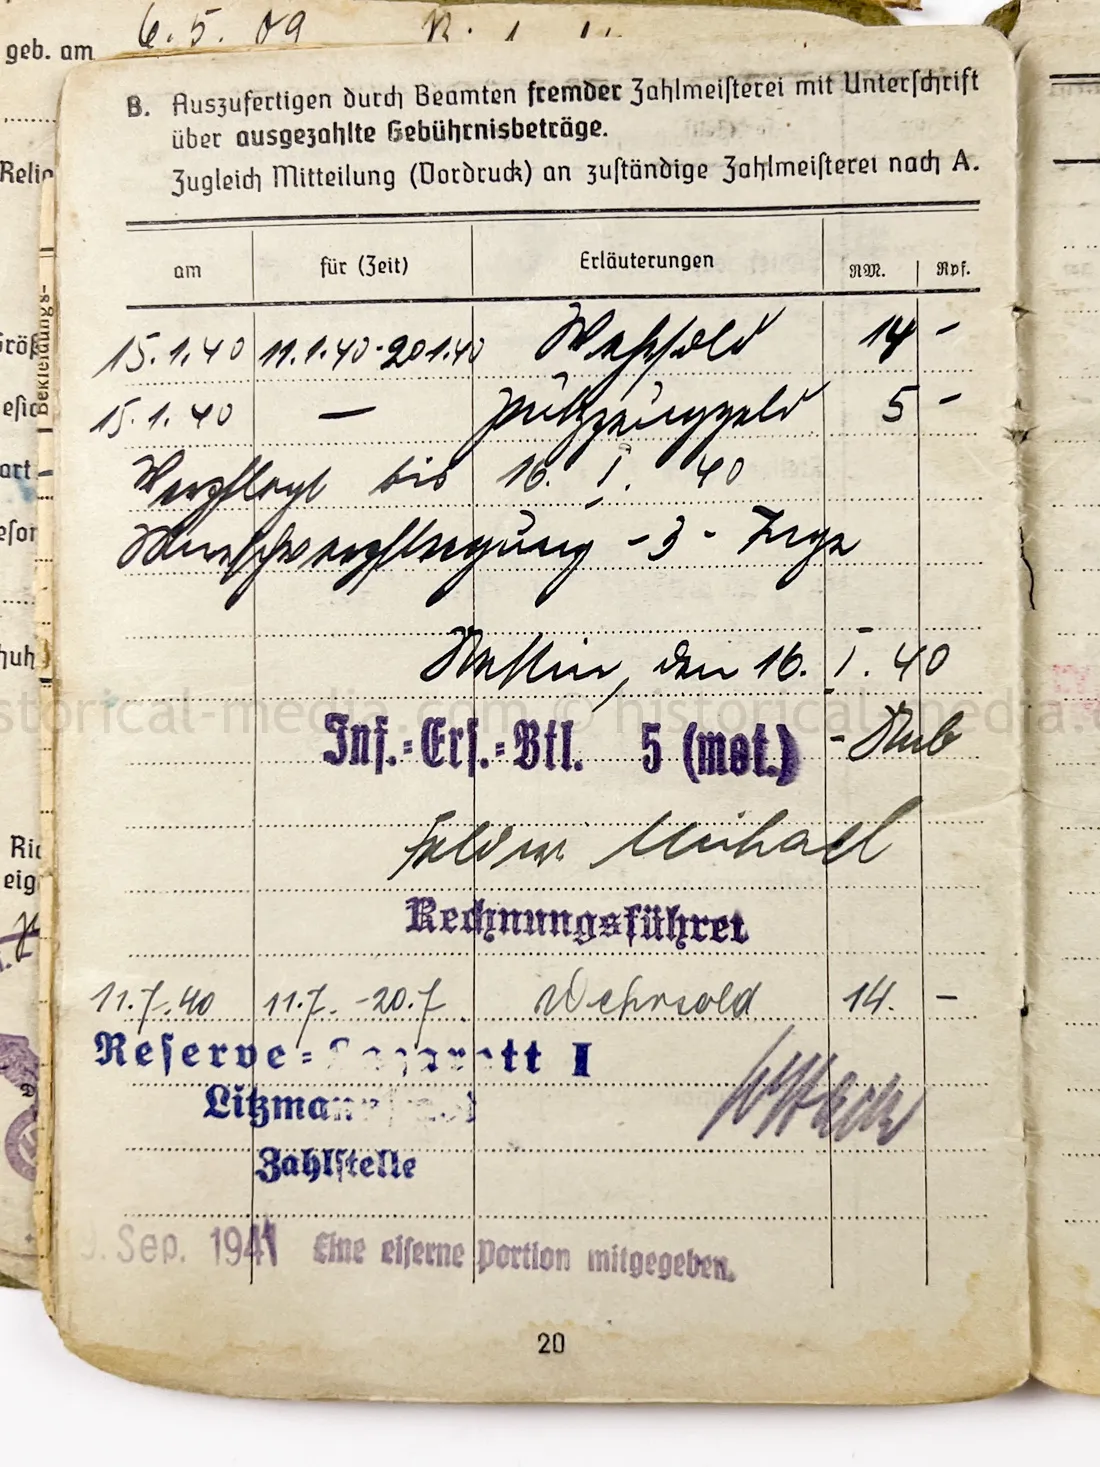 geb. am 6.5.09
B. Auszufertigen durch Beamten fremder Zahlmeisterei mit Unterschrift
über ausgezahlte Gebührnisbeträge.
Zugleich Mitteilung (Vordruck) an zuständige Zahlmeisterei nach A.
am für (Zeit) Erläuterungen RM. Rpf.
15.1.40 11.1.40-20.1.40 Wehrsold 14 -
15.1.40 — Putzzeuggeld 5 -
Verpflegt bis 16. I. 40
Marschverpflegung - 3 - Tage
Stettin, den 16. I. 40
historical-media.com © historical-media.com
Inf.=Ers.=Btl. 5 (mot.) - Stab
Feldw. Michael
Rechnungsführer
11.7.40 11.7. -20.7. Wehrsold 14. —
Reserve=Lazarett I
Litzmannstadt
Zahlstelle
9. Sep. 1941 Eine eiserne Portion mitgegeben.
20
Bekleidungs-